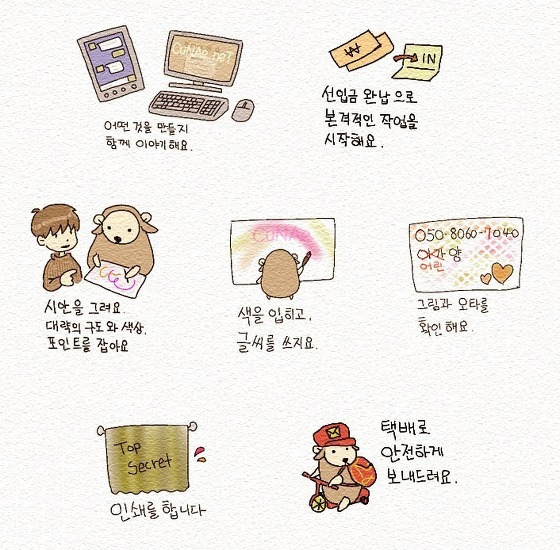 CUNAE.neT
어떤 것을 만들지
함께 이야기해요.
₩
IN
선입금 완납으로
본격적인 작업을
시작해요.
시안을 그려요.
대략의 구도와 색상,
포인트를 잡아요
CUNAE
색을 입히고,
글씨를 쓰지요.
050-8060-7040
아기 양
어린
그림과 오타를
확인해요.
Top
Secret
인쇄를 합니다
택배로
안전하게
보내드려요.